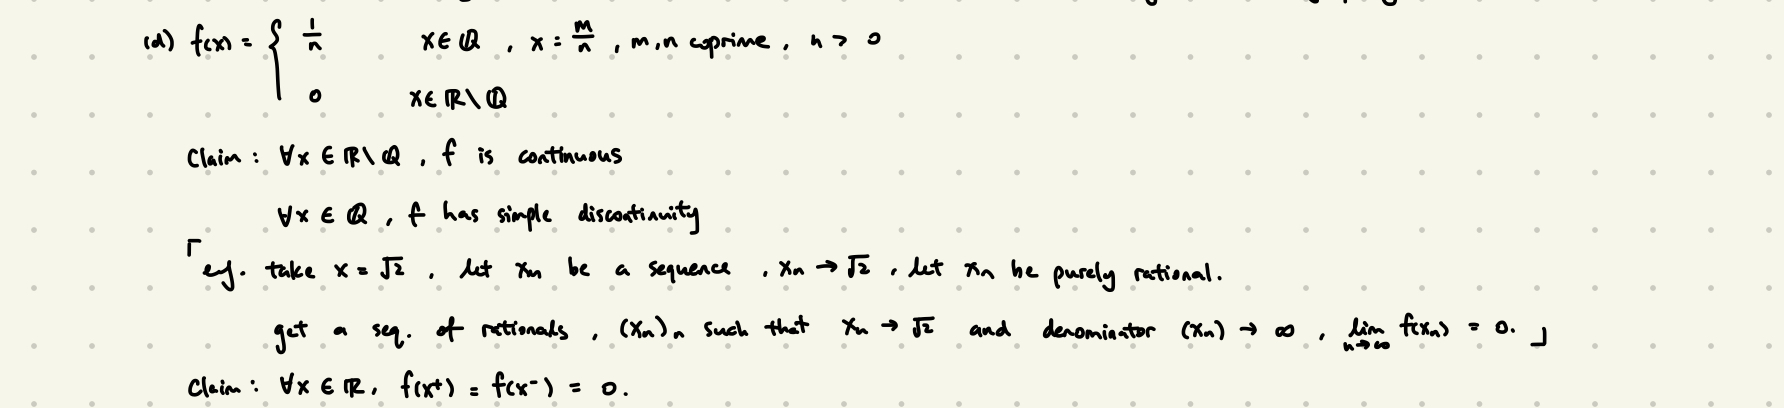 (d) f(x) = { 1/n x ∈ ℚ , x = m/n , m,n coprime , n > 0
0 x ∈ ℝ\ℚ
Claim : ∀x ∈ ℝ\ℚ , f is continuous
∀x ∈ ℚ , f has simple discontinuity
「 eg. take x = √2 , let xn be a sequence , xn → √2 , let xn be purely rational.
get a seq. of rationals , (xn)n such that xn → √2 and denominator (xn) → ∞ , lim n→∞ f(xn) = 0. 」
Claim : ∀x ∈ ℝ, f(x⁺) = f(x⁻) = 0.